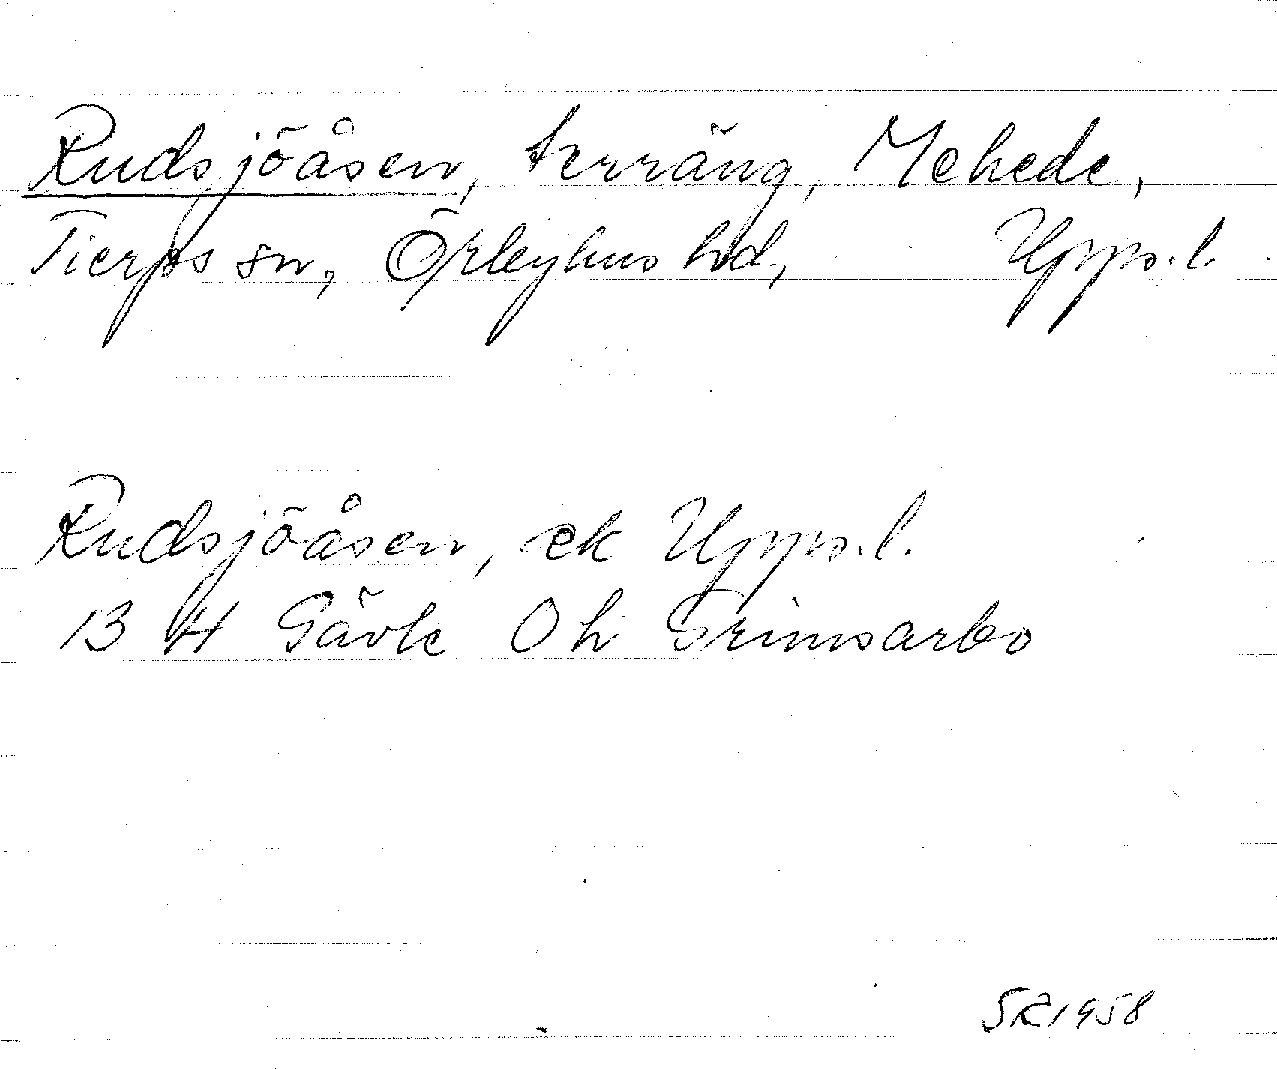 Rudsjöåsen, terräng, Mehede,
Tierps sn, Örbyhus hd, Upps.l.
Rudsjöåsen, ek Upps.l.
13 H Gävle Oh Grimsarbo
SR 1958